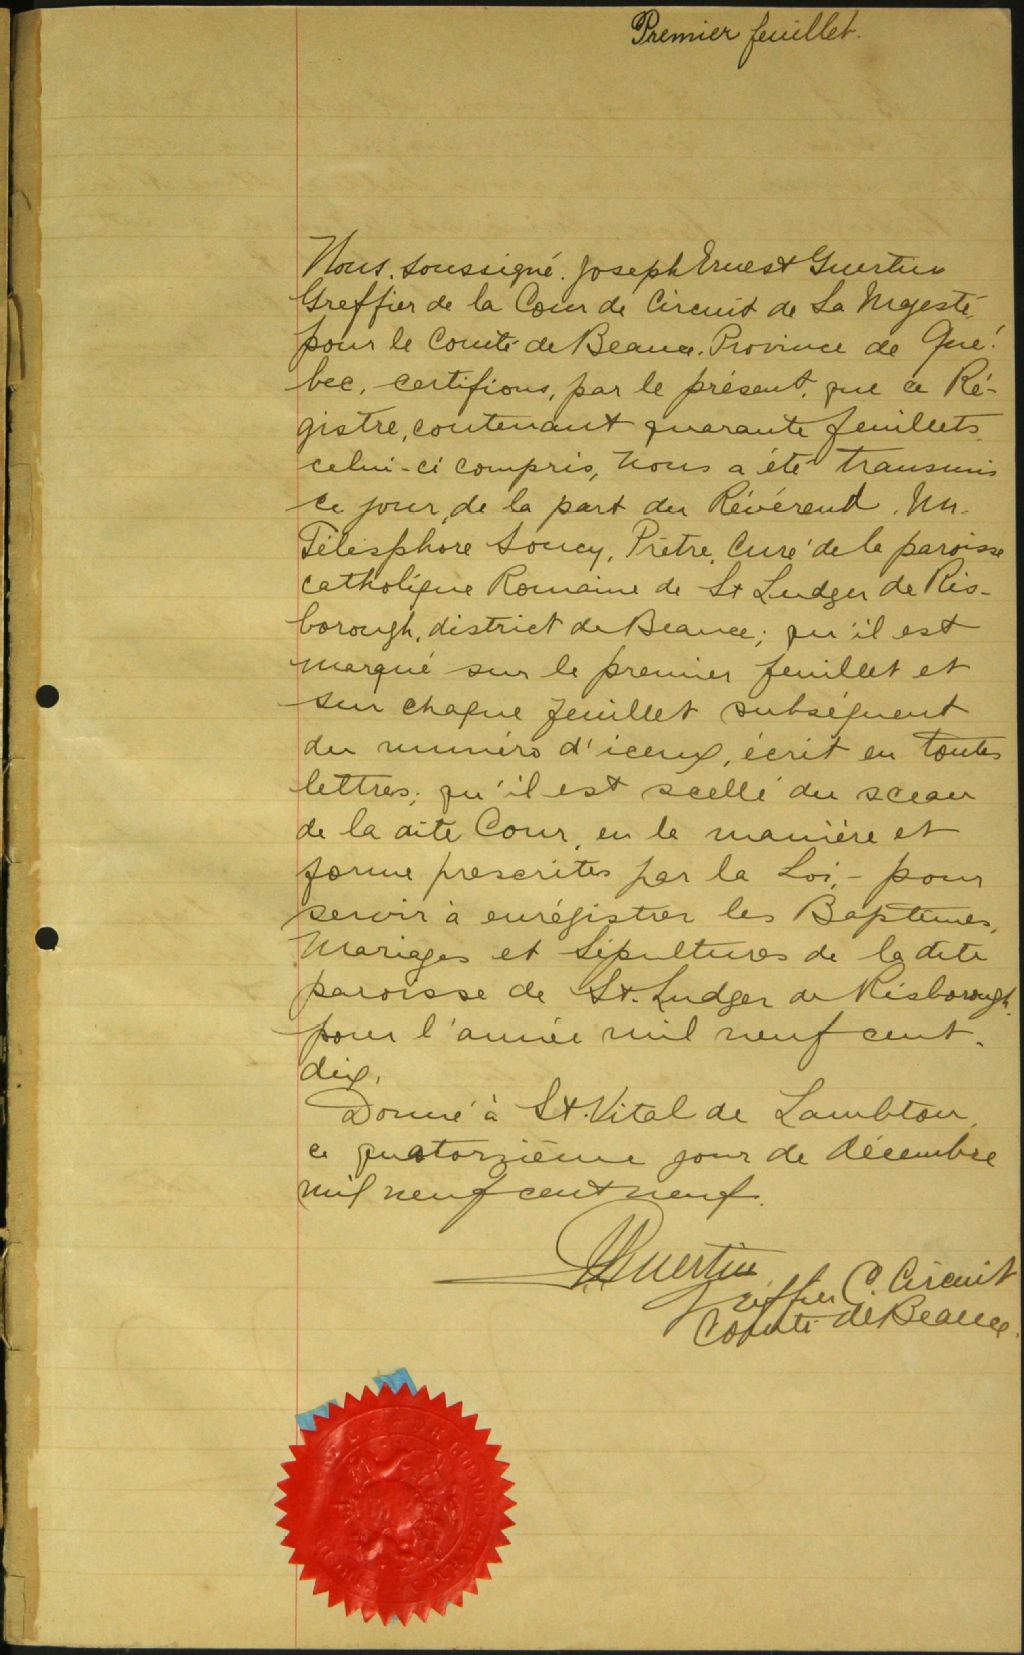 Premier feuillet.
Nous, soussigné, Joseph Ernest Guertin
Greffier de la Cour de Circuit de Sa Majesté,
pour le Comté de Beauce, Province de Qué-
bec, certifions, par le présent, que ce Ré-
gistre, contenant quarante feuillets,
celui-ci compris, nous a été transmis
ce jour, de la part du Révérend Mr.
Télesphore Soucy, Prêtre, Curé de la paroisse
catholique Romaine de St Ludger de Ris-
borough, district de Beauce; qu'il est
marqué sur le premier feuillet et
sur chaque feuillet subséquent
du numéro d'iceux, écrit en toutes
lettres; qu'il est scellé du sceau
de la dite Cour, en la manière et
forme prescrites par la Loi, - pour
servir à enrégistrer les Baptêmes,
Mariages et Sépultures de la dite
paroisse de St. Ludger de Risborough,
pour l'année mil neuf cent-
dix.
Donné à St. Vital de Lambton,
ce quatorzième jour de décembre
mil neuf cent neuf.
Guertin
Greffier C. Circuit
Comté de Beauce.